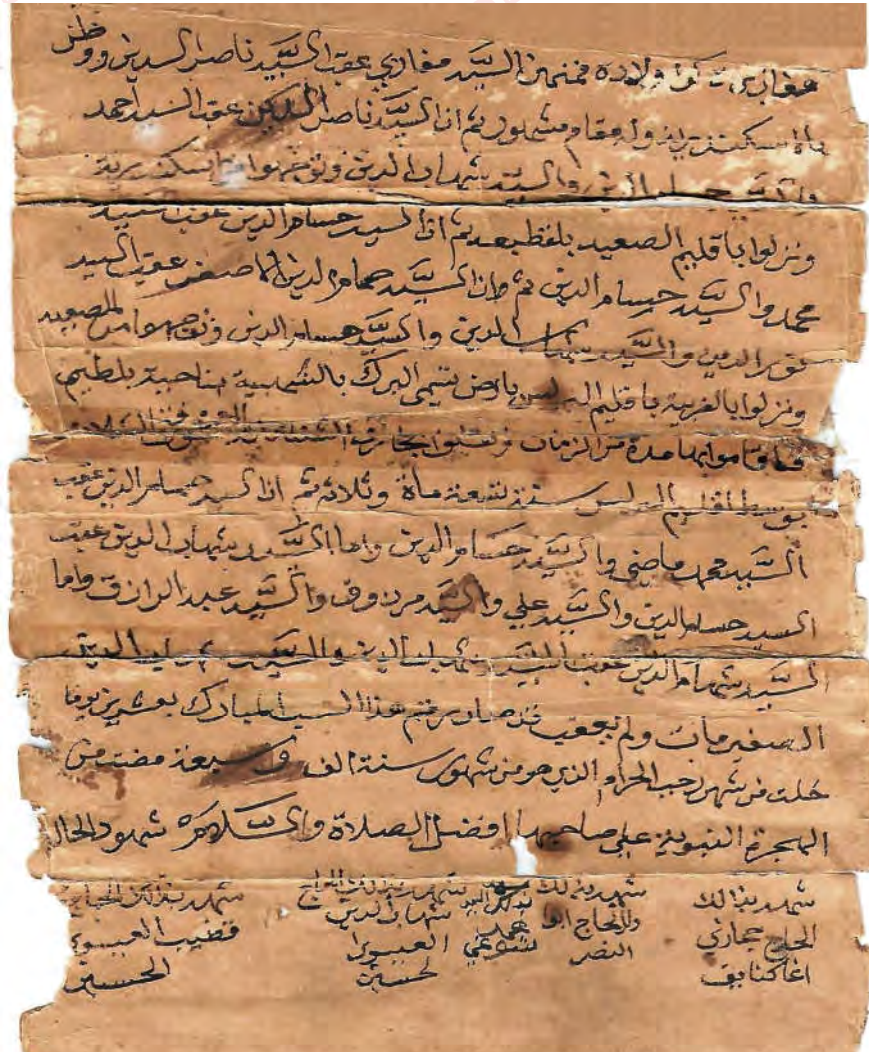 مغازي تكن ولاده فمنهم السيد مغازي عقب السيد ناصر الدين ووطن
بالاسكندرية وله مقام مشهور ثم ان السيد ناصر الدين عقب السيد أحمد
والسيد حسام الدين والسيد شهاب الدين وتوجهوا من اسكندرية
ونزلوا باقليم الصعيد ثم اذا السيد حسام الدين عقب السيد
محمد والسيد حسام الدين ثم ان السيد حسام الدين الاصغر عقب السيد
نور الدين والسيد شهاب الدين والسيد حسام الدين وتوجهوا من الصعيد
ونزلوا بالغربية باقليم البرلس بارض تسمى البرك بالشهبية بناحية بلطيم
فاقاموا بها مدة من الزمان
بوسط اقليم البرلس سنة تسعة ماة وثلاثه ثم اذا السيد حسام الدين عقب
السيد محمد ماضي والسيد حسام الدين واما السيد شهاب الدين عقب
السيد حسام الدين والسيد علي والسيد مرزوق والسيد عبد الرازق واما
السيد شهاب الدين عقب السيد شهاب الدين والسيد شهاب الدين
الصغير مات ولم يعقب قد صار رقم هذا النسب المبارك بعشرين يوما
خلت من شهر رجب الحرام الذي هو من شهور سنة الف وسبعة مضت من
الهجرة النبوية على صاحبها افضل الصلاة والسلام شهود الحال
شهد بذالك شهد بذلك شهد بذلك شهد بذلك الحاج شهد بذلك الحاج
الحاج حجازي والحاج ابو محمد شهاب الدين قضيب العيسوي
اغا النصر العيسوي الحسيني
الحسيني